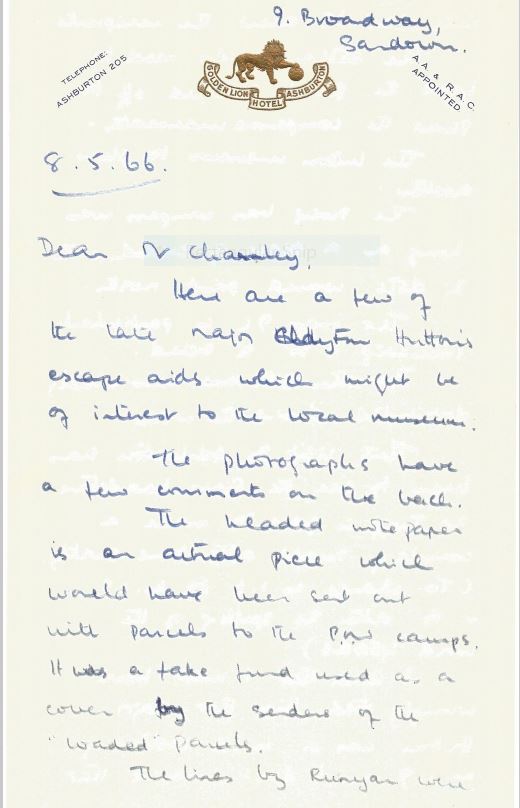 9. Broadway,
Sandown.
TELEPHONE:
ASHBURTON 205
GOLDEN LION HOTEL ASHBURTON
A.A. & R.A.C.
APPOINTED.
8.5.66.
Dear Mr Charnley,
Here are a few of
the late Major Clayton Hutton's
escape aids which might be
of interest to the local museum.
The photographs have
a few comments on the back.
The headed note paper
is an actual piece which
would have been sent out
with parcels to the P.O.W camps.
It was a fake fund used as a
cover by the senders of the
"loaded" parcels.
The lines by Runyan were